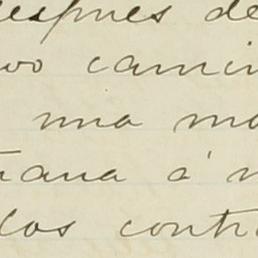 después de
camin
una ma
ñana á
los contr